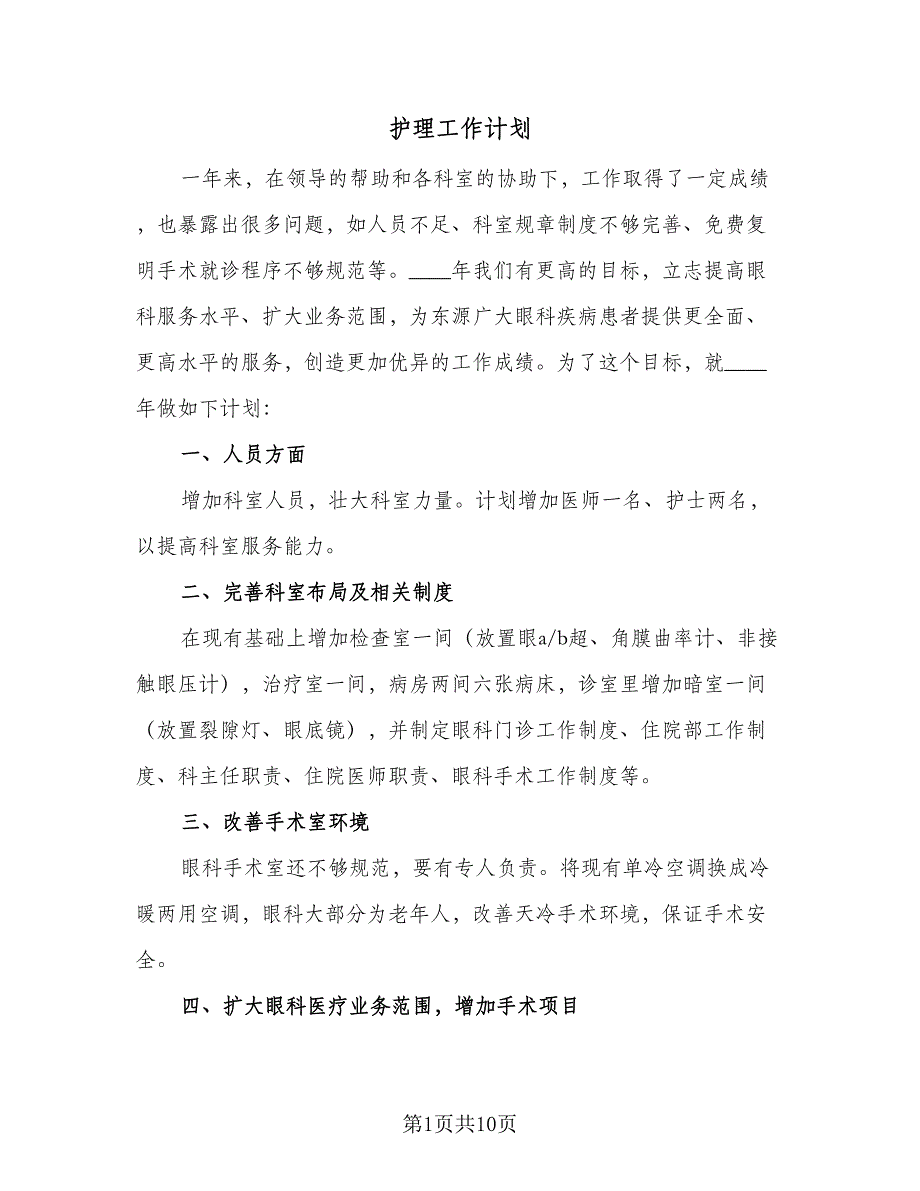 护理工作计划
一年来，在领导的帮助和各科室的协助下，工作取得了一定成绩
，也暴露出很多问题，如人员不足、科室规章制度不够完善、免费复
明手术就诊程序不够规范等。____年我们有更高的目标，立志提高眼
科服务水平、扩大业务范围，为东源广大眼科疾病患者提供更全面、
更高水平的服务，创造更加优异的工作成绩。为了这个目标，就____
年做如下计划：
一、人员方面
增加科室人员，壮大科室力量。计划增加医师一名、护士两名，
以提高科室服务能力。
二、完善科室布局及相关制度
在现有基础上增加检查室一间（放置眼a/b超、角膜曲率计、非接
触眼压计），治疗室一间，病房两间六张病床，诊室里增加暗室一间
（放置裂隙灯、眼底镜），并制定眼科门诊工作制度、住院部工作制
度、科主任职责、住院医师职责、眼科手术工作制度等。
三、改善手术室环境
眼科手术室还不够规范，要有专人负责。将现有单冷空调换成冷
暖两用空调，眼科大部分为老年人，改善天冷手术环境，保证手术安
全。
四、扩大眼科医疗业务范围，增加手术项目
第1页共10页